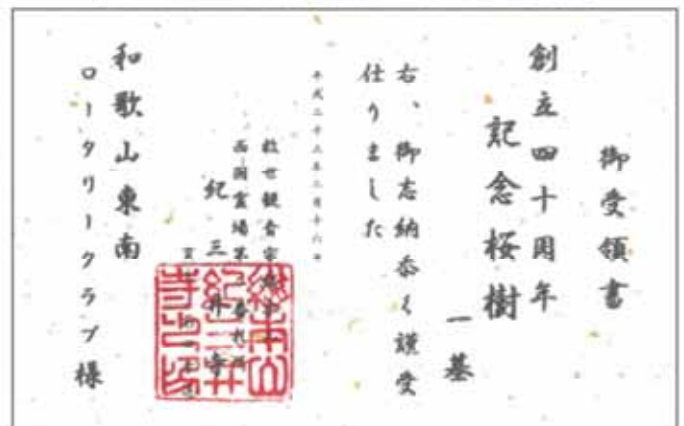 御受領書
創立四十周年
記念桜樹
一基
右、御志納忝く謹受
仕りました
平成二十五年二月十六日
救世観音宗
西国霊場第二番札所
紀三井寺
和歌山東南
ロータリークラブ様